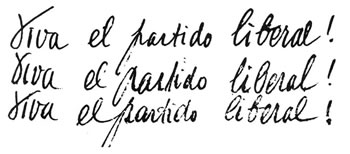 Viva el partido liberal!
Viva el partido liberal!
Viva el partido liberal!